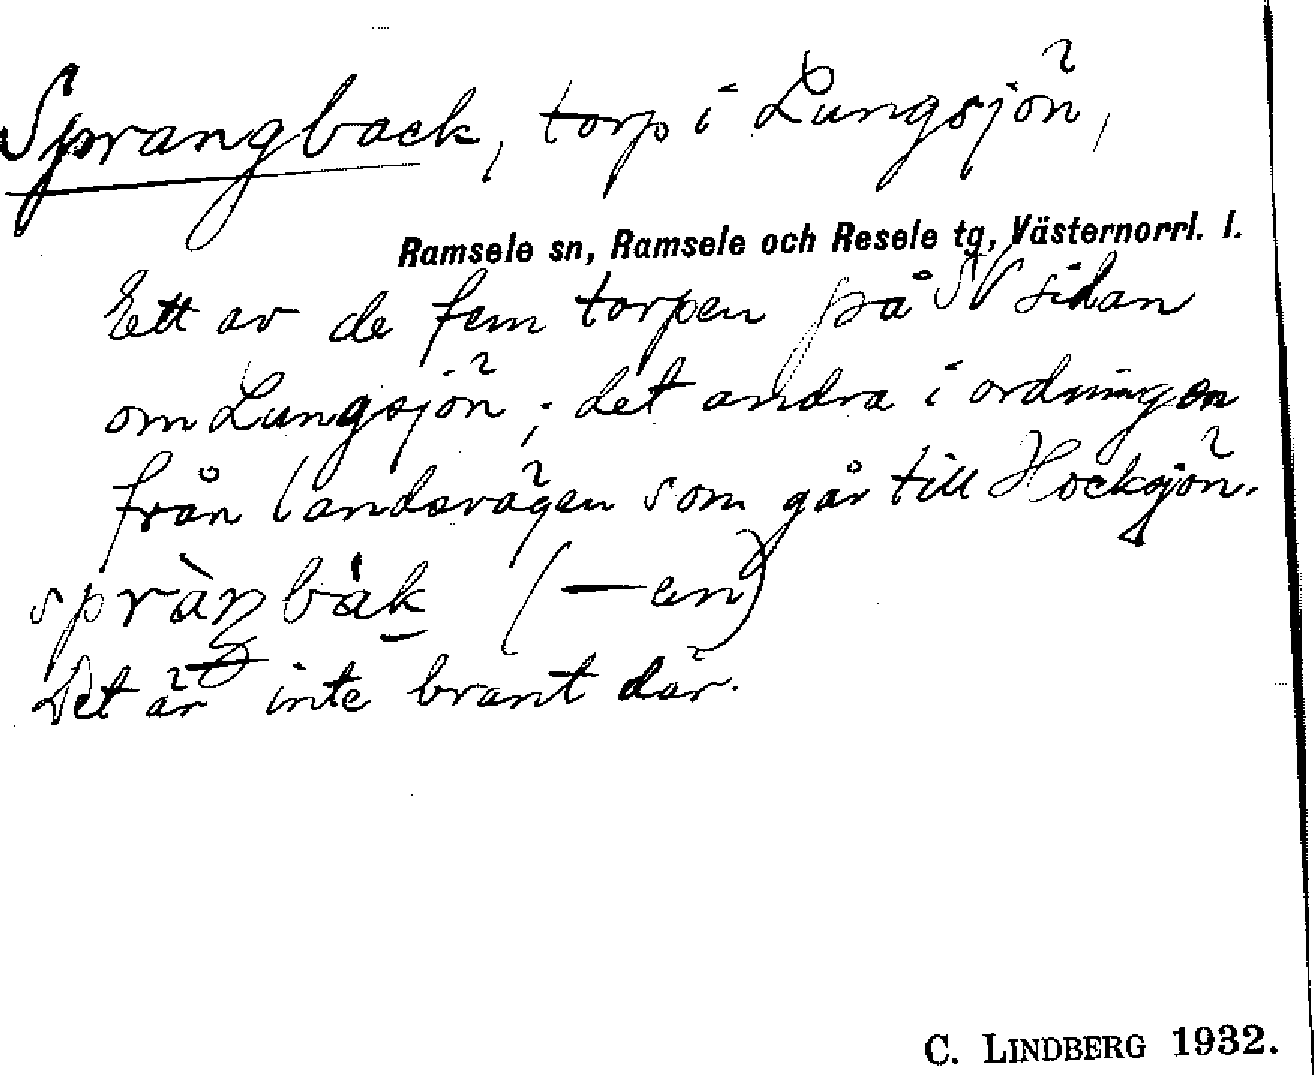 Sprangback, torp i Lungsjön,
Ramsele sn, Ramsele och Resele tg, Västernorrl. l.
Ett av de fem torpen på SV sidan
om Lungsjön; det andra i ordningen
från landsvägen som går till Hocksjön.
(—en)
Det är inte brant där.
C. LINDBERG 1932.